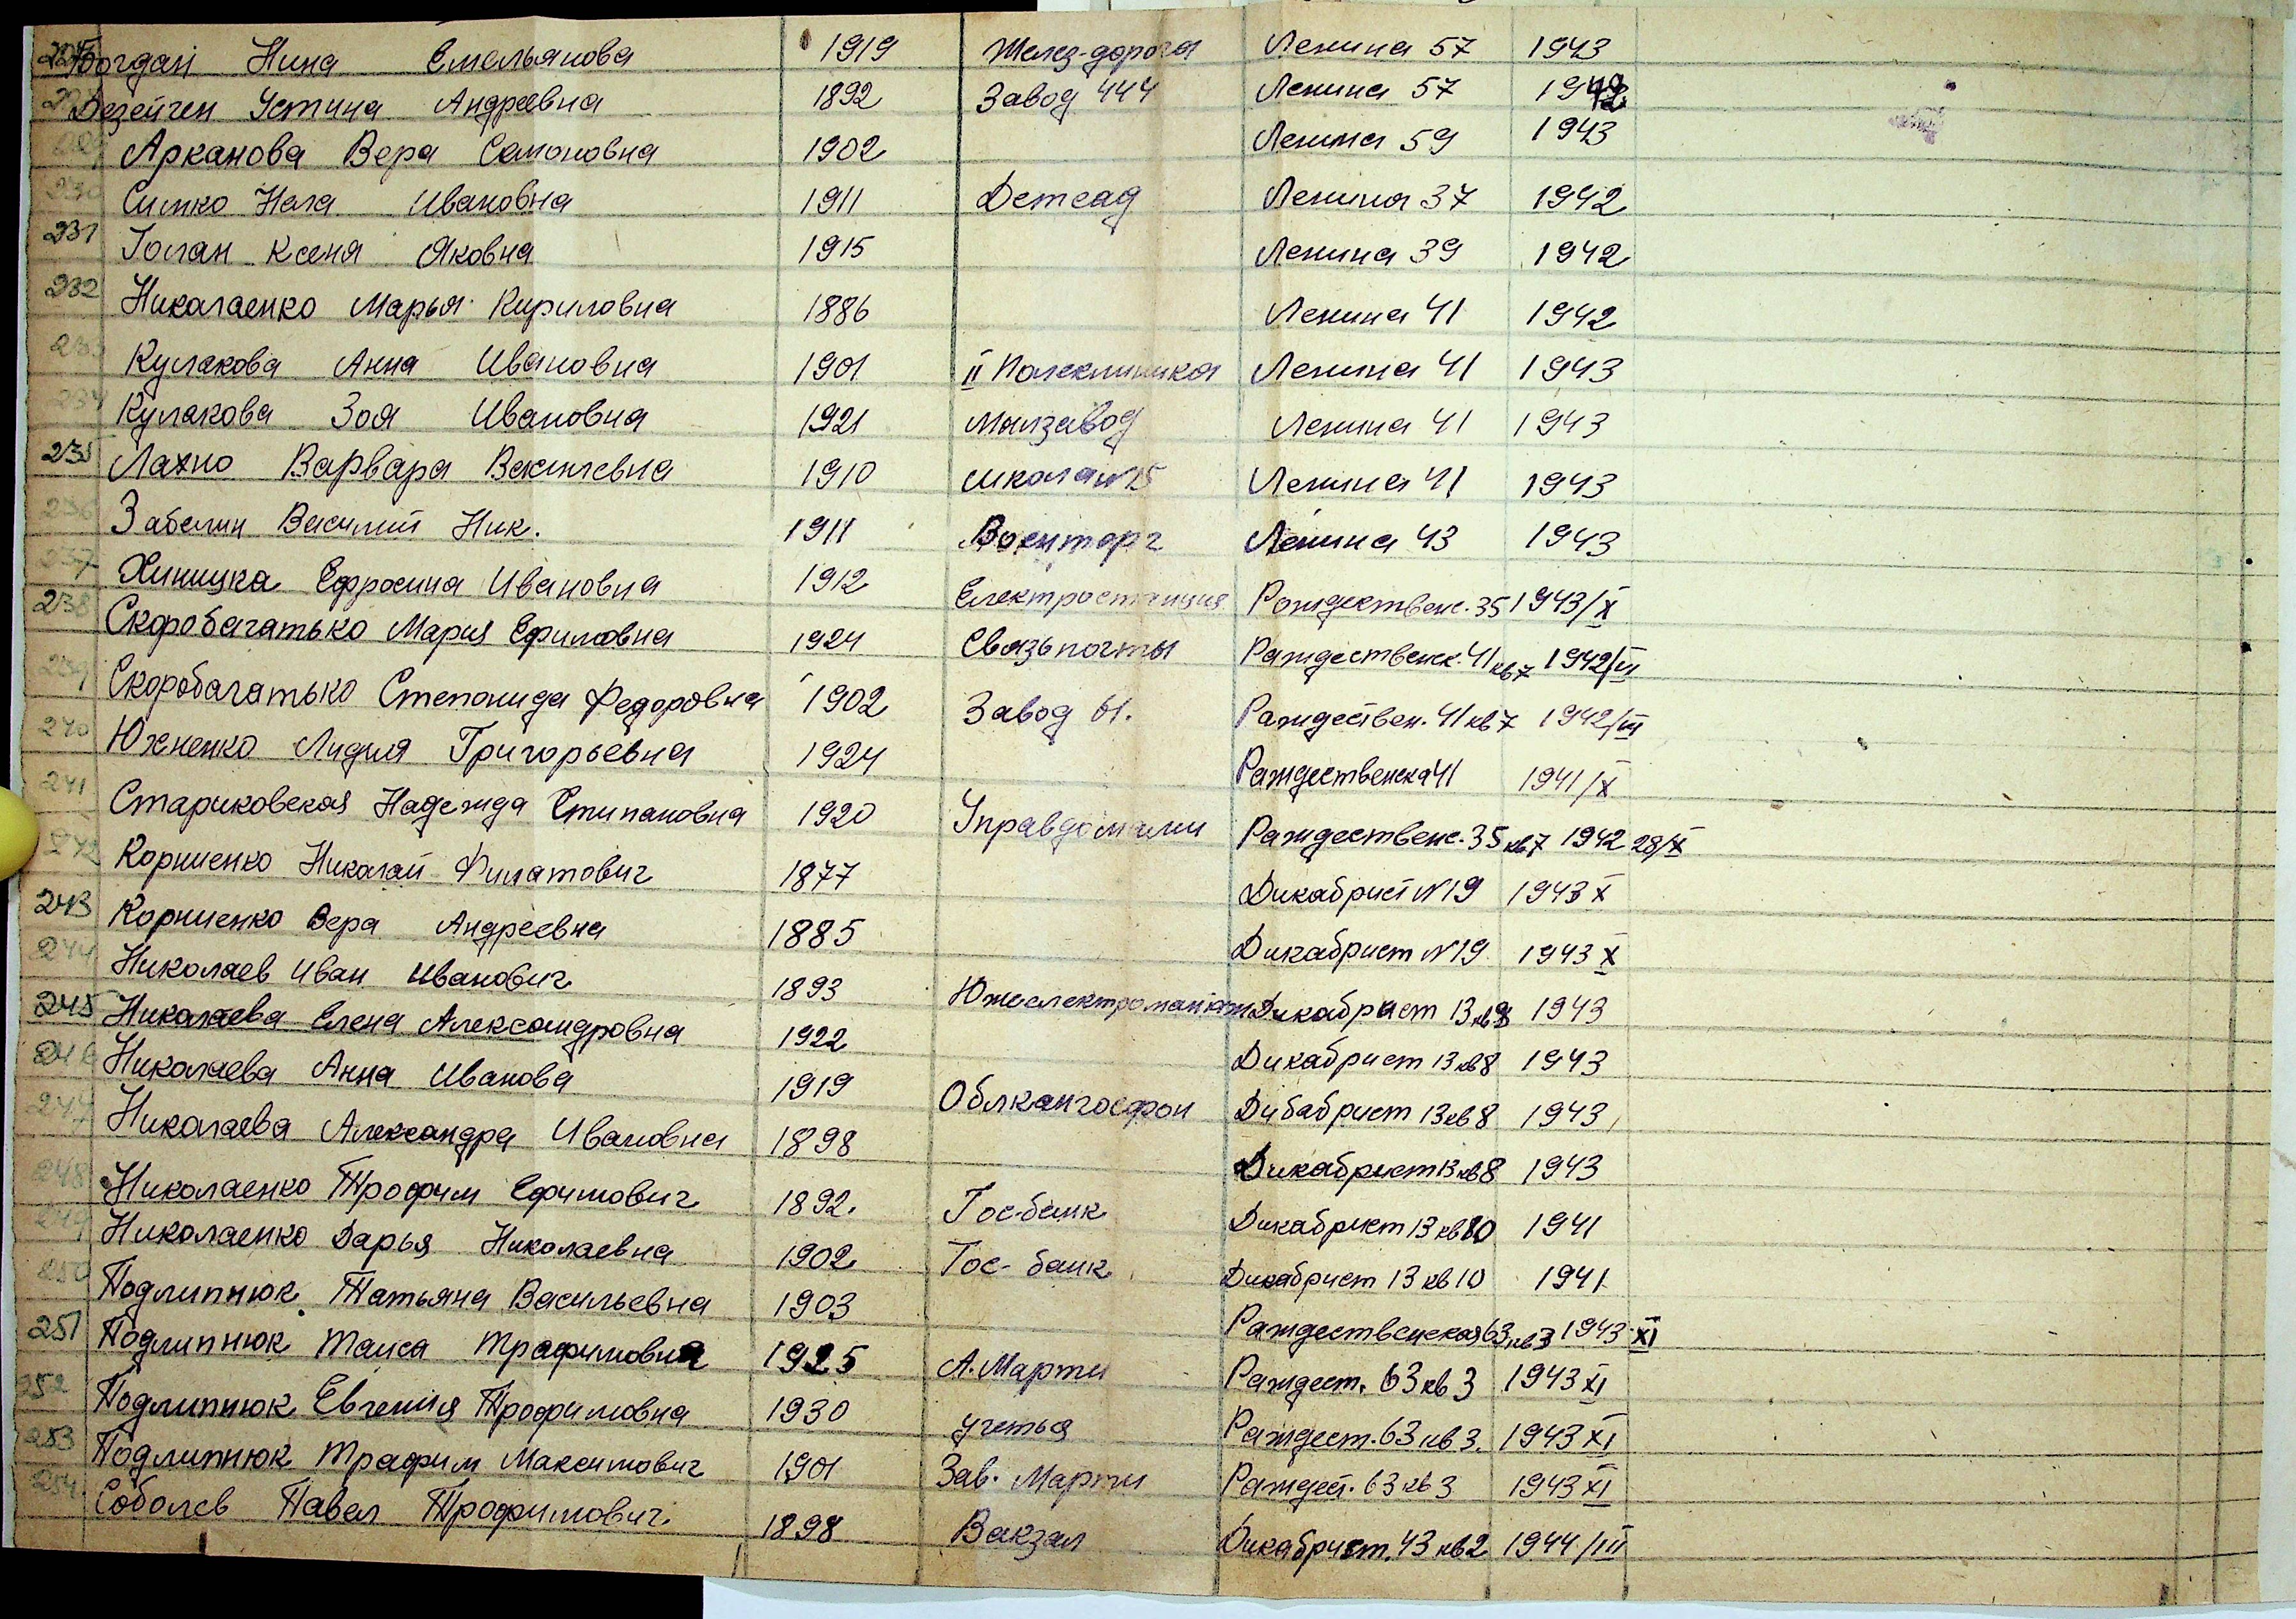 Богдан Нина Емельянова 1919 Желез-дорога Ленина 57 1943
Дезейчен Устина Андреевна 1892 Завод 444 Ленина 57 1942
Арканова Вера Самоновна 1902 Ленина 59 1943
230 Симко Нела Ивановна 1911 Детсад Ленина 37 1942
231 Голан Ксеня Яковна 1915 Ленина 39 1942
232 Никалаенко Марья Кириловна 1886 Ленина 41 1942
233 Кулакова Анна Ивановна 1901 II Полеклиника Ленина 41 1943
234 Кулакова Зоя Ивановна 1921 Малзавод Ленина 41 1943
235 Лахно Варвара Васильевна 1910 школа N15 Ленина 41 1943
236 Забелин Василий Ник. 1911 Военторг Ленина 43 1943
237 Хиницка Ефрасина Ивановна 1912 Електростанция Рождественс. 35 1943/X
238 Скоробагатько Мария Ефимовна 1924 Связь почты Раждественск. 41 кв 7 1942/III
239 Скоробагатько Степонида Федоровна 1902 Завод 61. Раждествен. 41 кв 7 1942/III
240 Юхненко Лидия Григорьевна 1924 Раждественска 41 1941/X
241 Стариковская Надежда Стипановна 1920 Управдомами Раждественс. 35 кв 7 1942 28/X
242 Корниенко Николай Филатович 1877 Дикабрист N19 1943 X
243 Корниенко Вера Андреевна 1885 Дикабрист N19 1943 X
244 Николаев Иван Иванович 1893 Южелектромантаж Дикабрист 13 кв 8 1943
245 Николаева Елена Александровна 1922 Дикабрист 13 кв 8 1943
246 Николаева Анна Иванова 1919 Облкангосфон Дибабрист 13 кв 8 1943
247 Николаева Александра Ивановна 1898 Дикабрист 13 кв 8 1943
248 Николаенко Трофим Ефимович 1892. Гос-банк Дикабрист 13 кв 10 1941
249 Николаенко Дарья Николаевна 1902 Гос-банк Дикабрист 13 кв 10 1941
250 Подлипнюк Татьяна Васильевна 1903 Раждественская 63 кв 3 1943 XI
251 Подлипнюк Таиса Трафимовна 1925 А. Марти Раждест. 63 кв 3 1943 XI
252 Подлипнюк Евгения Трофимовна 1930 учетья Раждест. 63 кв 3. 1943 XI
253 Подлипнюк Трафим Максимович 1901 Зав. Марти Раждест. 63 кв 3 1943 XI
254. Соболев Павел Трофимович. 1898 Вакзал Дикабрист. 43 кв 2 1944/III